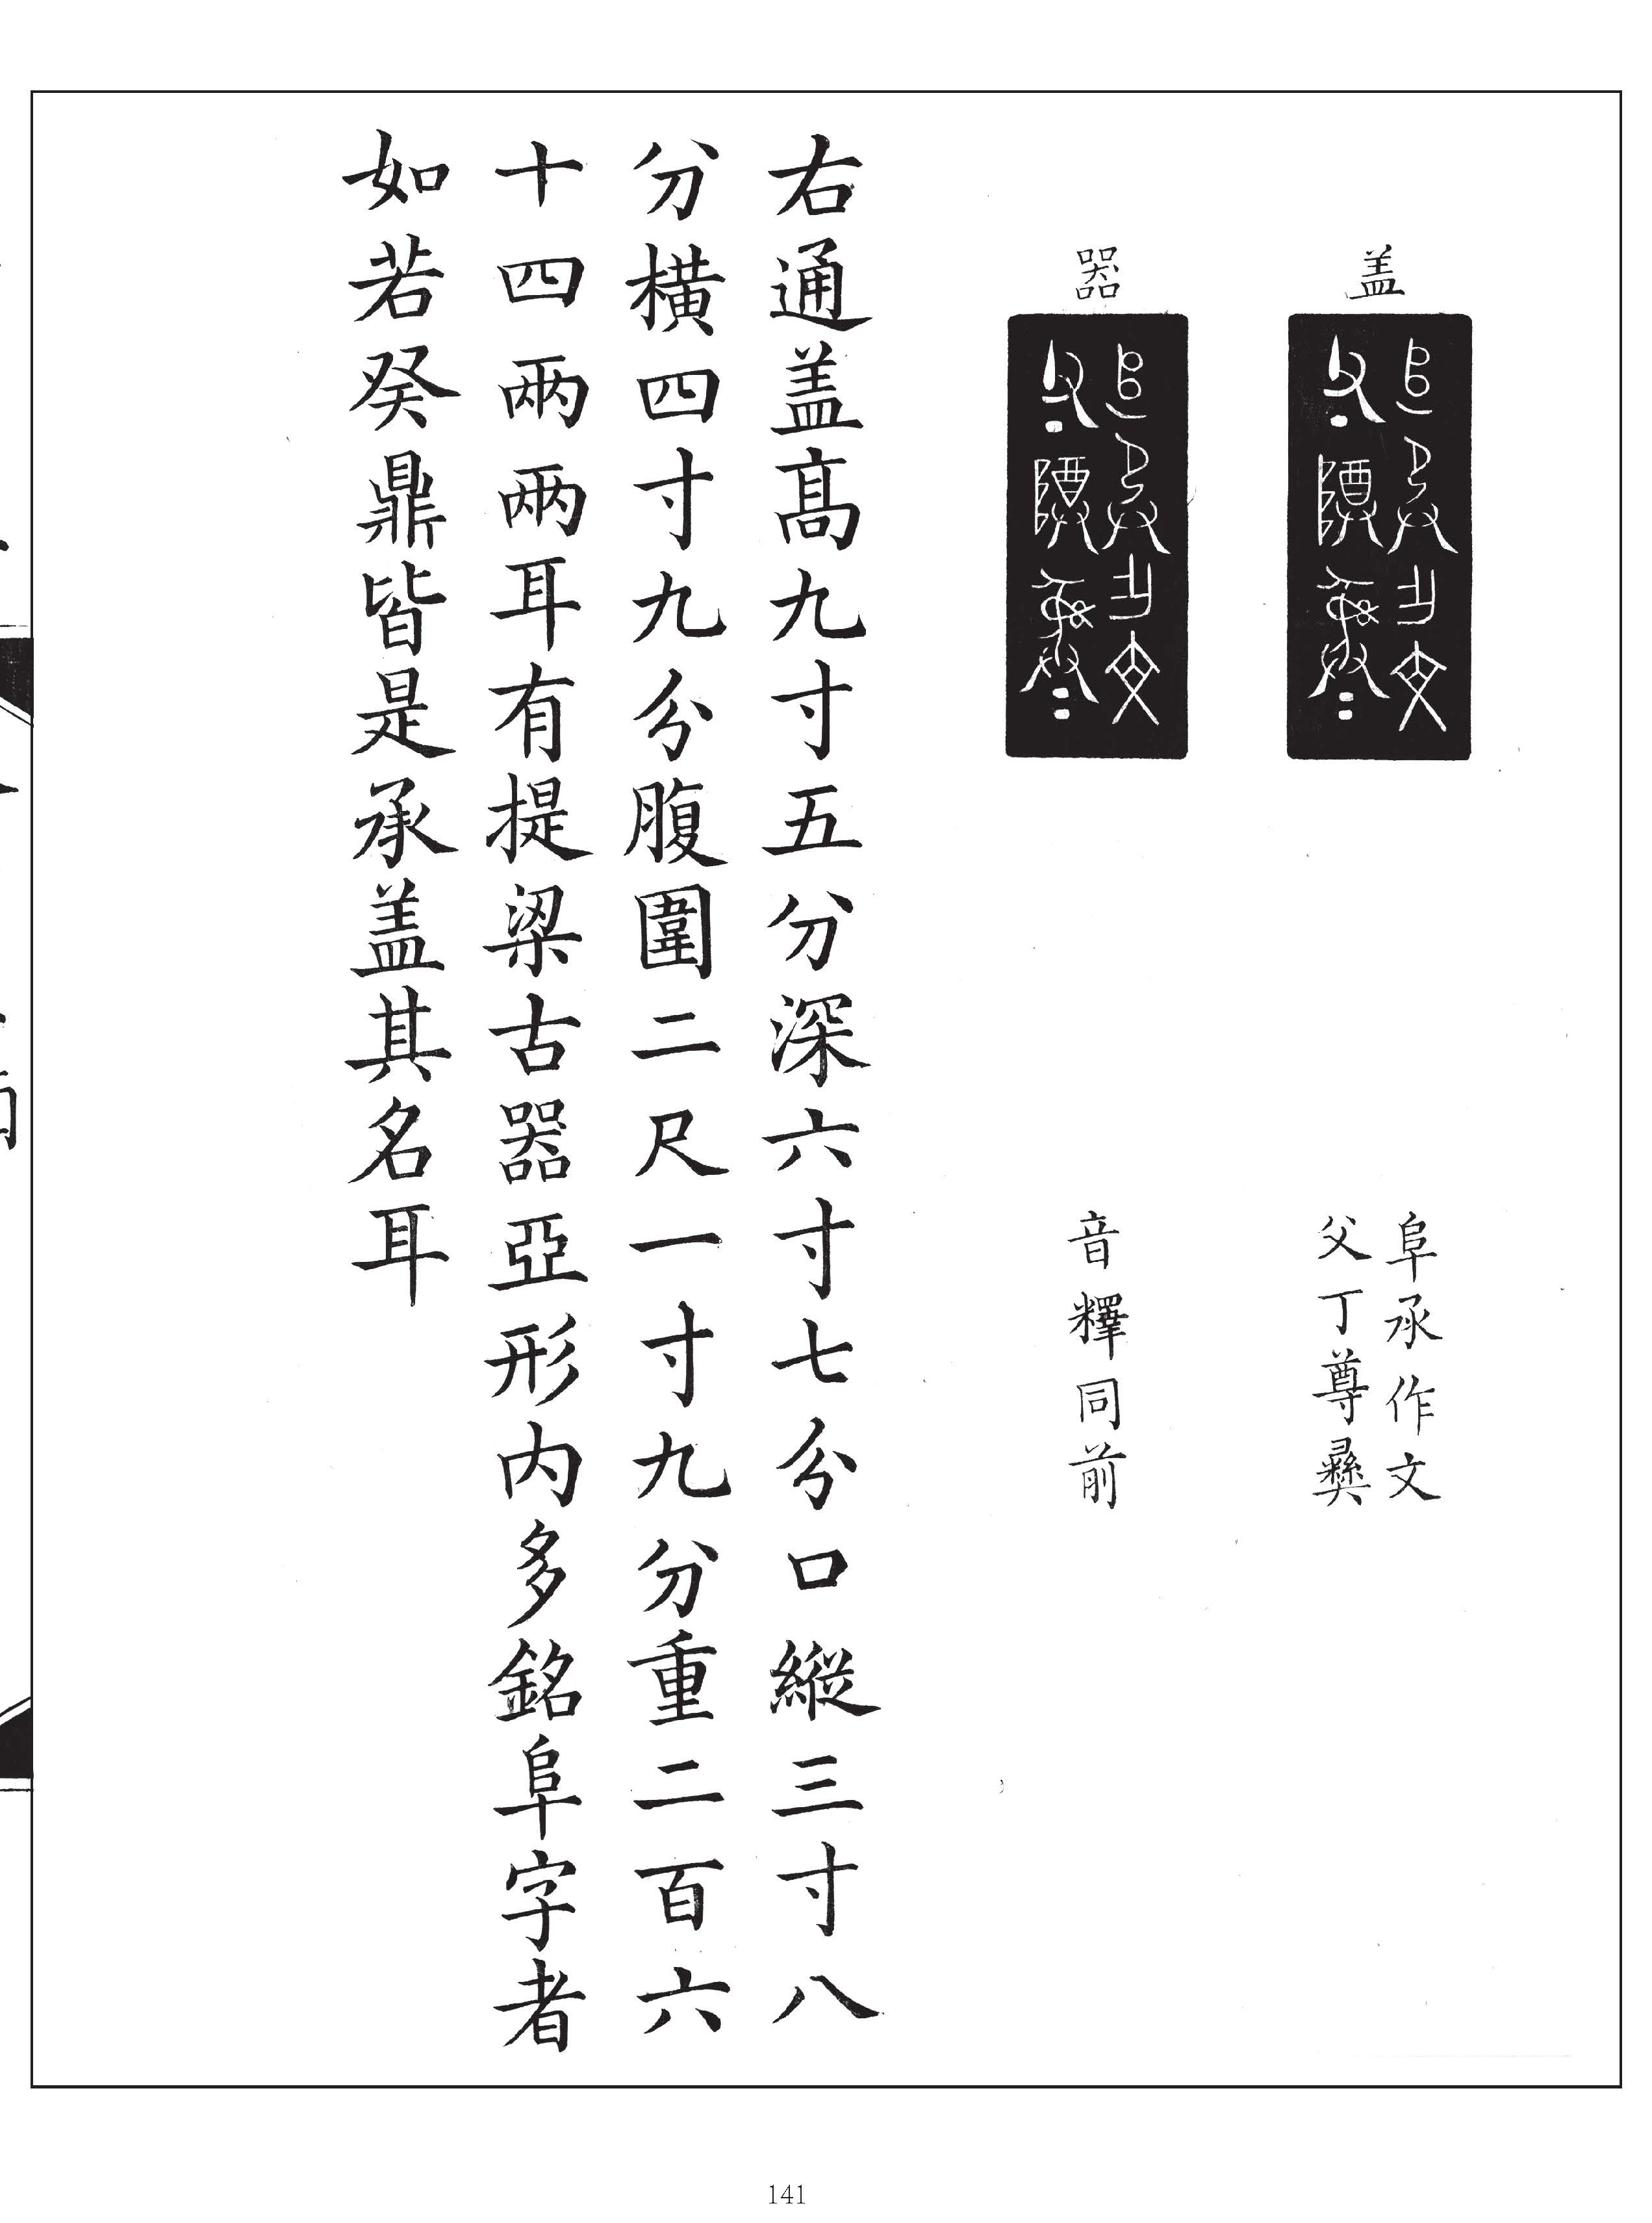 盖
阜承作文
父丁尊彝
器
音釋同前
右通盖高九寸五分深六寸七分口縱三寸八
分橫四寸九分腹圍二尺一寸九分重二百六
十四兩兩耳有提梁古器亞形内多銘阜字者
如若癸鼎皆是承盖其名耳
141